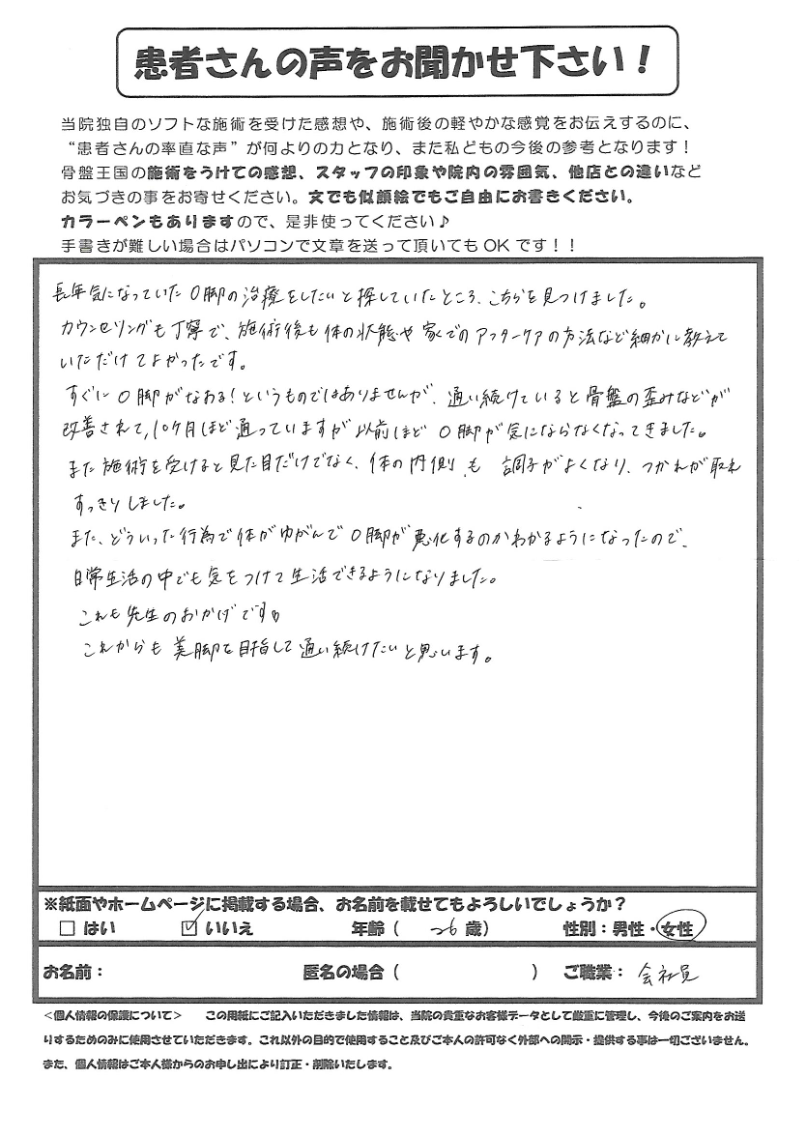 患者さんの声をお聞かせ下さい！
当院独自のソフトな施術を受けた感想や、施術後の軽やかな感覚をお伝えするのに、
“患者さんの率直な声”が何よりの力となり、また私どもの今後の参考となります！
骨盤王国の施術をうけての感想、スタッフの印象や院内の雰囲気、他店との違いなど
お気づきの事をお寄せください。文でも似顔絵でもご自由にお書きください。
カラーペンもありますので、是非使ってください♪
手書きが難しい場合はパソコンで文章を送って頂いてもOKです！！
長年気になっていたO脚の治療をしたいと探していたところ、こちらを見つけました。
カウンセリングも丁寧で、施術後も体の状態や家でのアフターケアの方法など細かに教えて
いただけてよかったです。
すぐにO脚がなおる！というものではありませんが、通い続けていると骨盤の歪みなどが
改善されて、10ヶ月ほど通っていますが以前ほどO脚が気にならなくなってきました。
また施術を受けると見た目だけでなく、体の内側も調子がよくなり、つかれが取れ
すっきりしました。
また、どういった行為で体がゆがんでO脚が悪化するのかわかるようになったので、
日常生活の中でも気をつけて生活できるようになりました。
これも先生のおかげです。
これからも美脚を目指して通い続けたいと思います。
※紙面やホームページに掲載する場合、お名前を載せてもよろしいでしょうか？
□ はい ☑ いいえ 年齢（ 26 歳） 性別：男性・女性
お名前： 匿名の場合（ ） ご職業： 会社員
＜個人情報の保護について＞ この用紙にご記入いただきました情報は、当院の貴重なお客様データとして厳重に管理し、今後のご案内をお送
りするためのみに使用させていただきます。これ以外の目的で使用すること及びご本人の許可なく外部への開示・提供する事は一切ございません。
また、個人情報はご本人様からのお申し出により訂正・削除いたします。